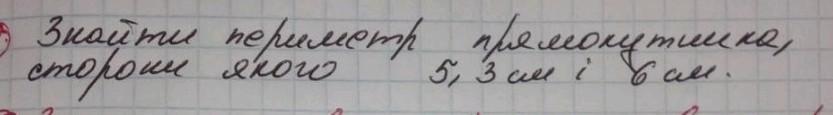 Знайти периметр прямокутника,
сторони якого 5,3 см і 6 см.